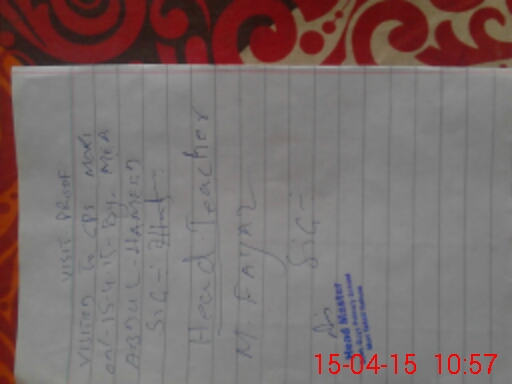 VISIT PROOF
VISITED to GPS MORI
ON 15-4-15 By MEA
ABDUL HAMEED
SIG:-
Head Teacher
M. FAYAZ
SIG:-
Head Master
15-04-15 10:57